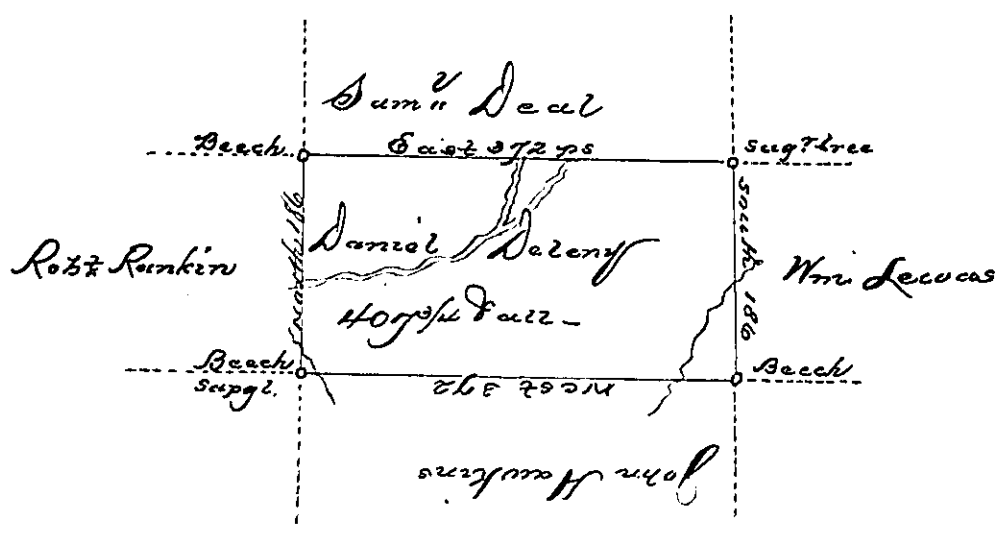 Sam'll Deal
Beech
East 372 ps
Sugr tree
north 186
Daniel Deleny
south 186
Robt Rankin
Wm Lewcas
407 3/4 &all
Beech
Sapgl.
west 372
Beech
John Hawkins